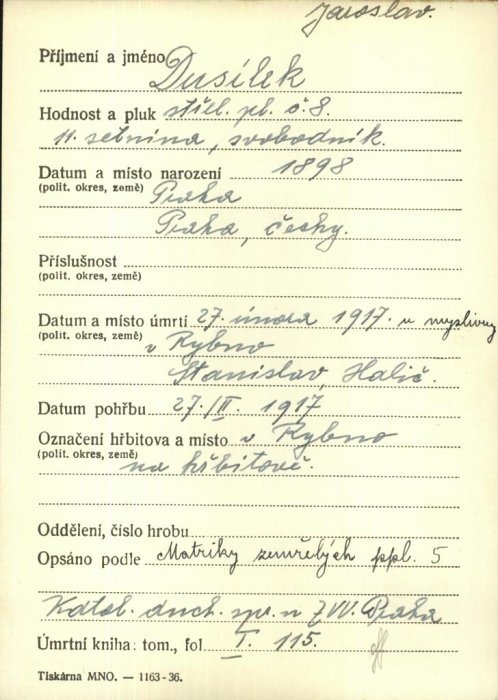 Jaroslav.
Příjmení a jméno Dusílek
Hodnost a pluk střel. pl. č. 8.
11. setnina, svobodník.
Datum a místo narození 1898
(polit. okres, země) Praha
Praha, Čechy.
Příslušnost
(polit. okres, země)
Datum a místo úmrtí 27. února 1917. u myslivny
(polit. okres, země) v Rybno
Stanislav, Halič.
Datum pohřbu 27./II. 1917
Označení hřbitova a místo v Rybno
(polit. okres, země) na hřbitově.
Oddělení, číslo hrobu
Opsáno podle Matriky zemřelých ppl. 5
Katol. duch. spr. u ZVV. Praha
Úmrtní kniha: tom., fol. I. 115.
Tiskárna MNO. — 1163-36.